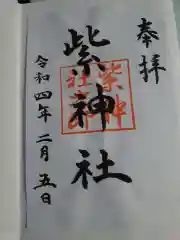 奉拝
紫神社
令和四年二月五日